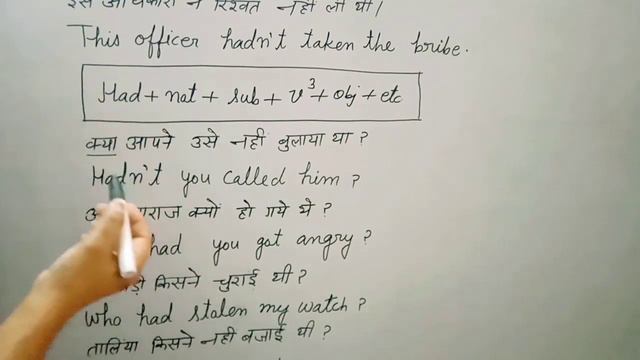 इस अधिकारी ने रिश्वत नहीं ली थी।
This officer hadn't taken the bribe.
Had + not + sub + v³ + obj + etc
क्या आपने उसे नही बुलाया था ?
Hadn't you called him ?
क्यों हो गये थे ?
had you got angry ?
किसने चुराई थी ?
Who had stolen my watch ?
तालिया किसने नही बजाई थी ?